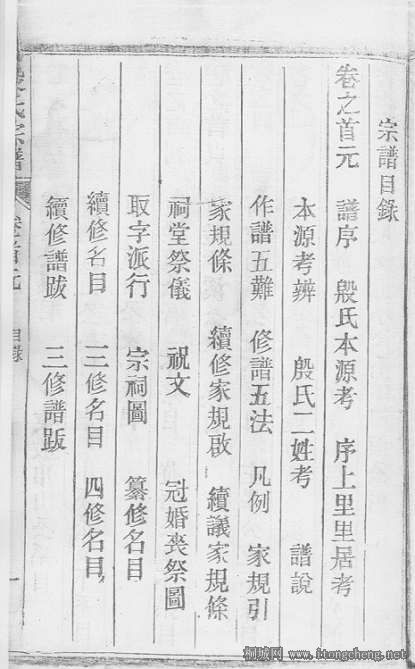 宗譜目錄
卷之首元 譜序 殷氏本源考 序上里里居考
本源考辨 殷氏二姓考 譜說
作譜五難 修譜五法 凡例 家規引
家規條 續修家規啟 續議家規條
祠堂祭儀 祝文 冠婚喪祭圖
取字派行 宗祠圖 纂修名目
續修名目 三修名目 四修名目
續修譜跋 三修譜跋
氏宗譜 卷首元 目錄 一
桐城网 www.itongcheng.net